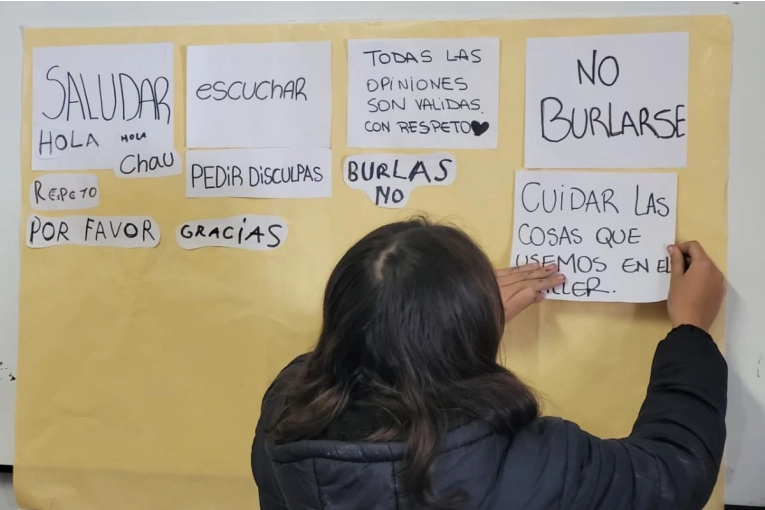 SALUDAR
HOLA HOLA
Chau
RESPETO
POR FAVOR
escuchAR
PEDIR DISCULPAS
GRACÍAS
TODAS LAS
OPINIONES
SON VALIDAS.
CON RESPETO
BURLAS
NO
NO
BURLARSE
CUIDAR LAS
COSAS QUE
USEMOS EN EL